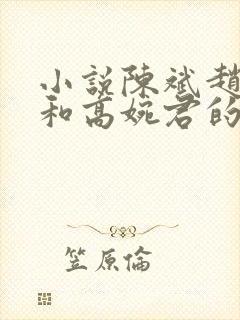 小說陳斌趙
和高婉君的
笠原倫